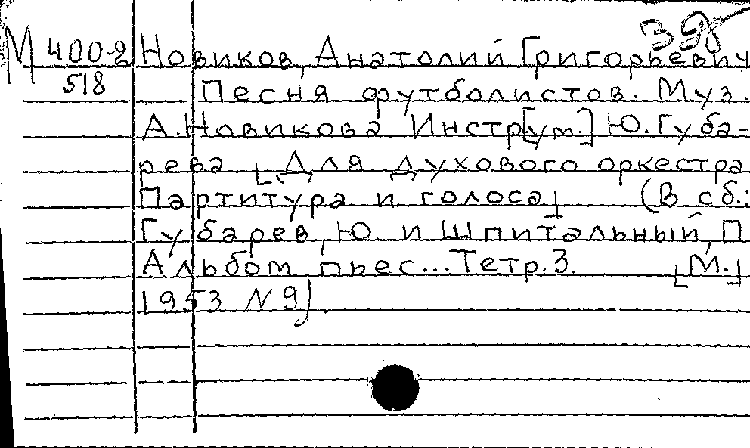 М 400-2 Новиков, Анатолий Григорьевич
518 Песня футболистов. Муз.
А. Новикова Инстр[ум.] Ю. Губа-
рева [Для духового оркестра
Партитура и голоса] (В сб.:
Губарев, Ю и Шпитальный, П
Альбом пьес... Тетр. 3. [М.]
1953 №9).